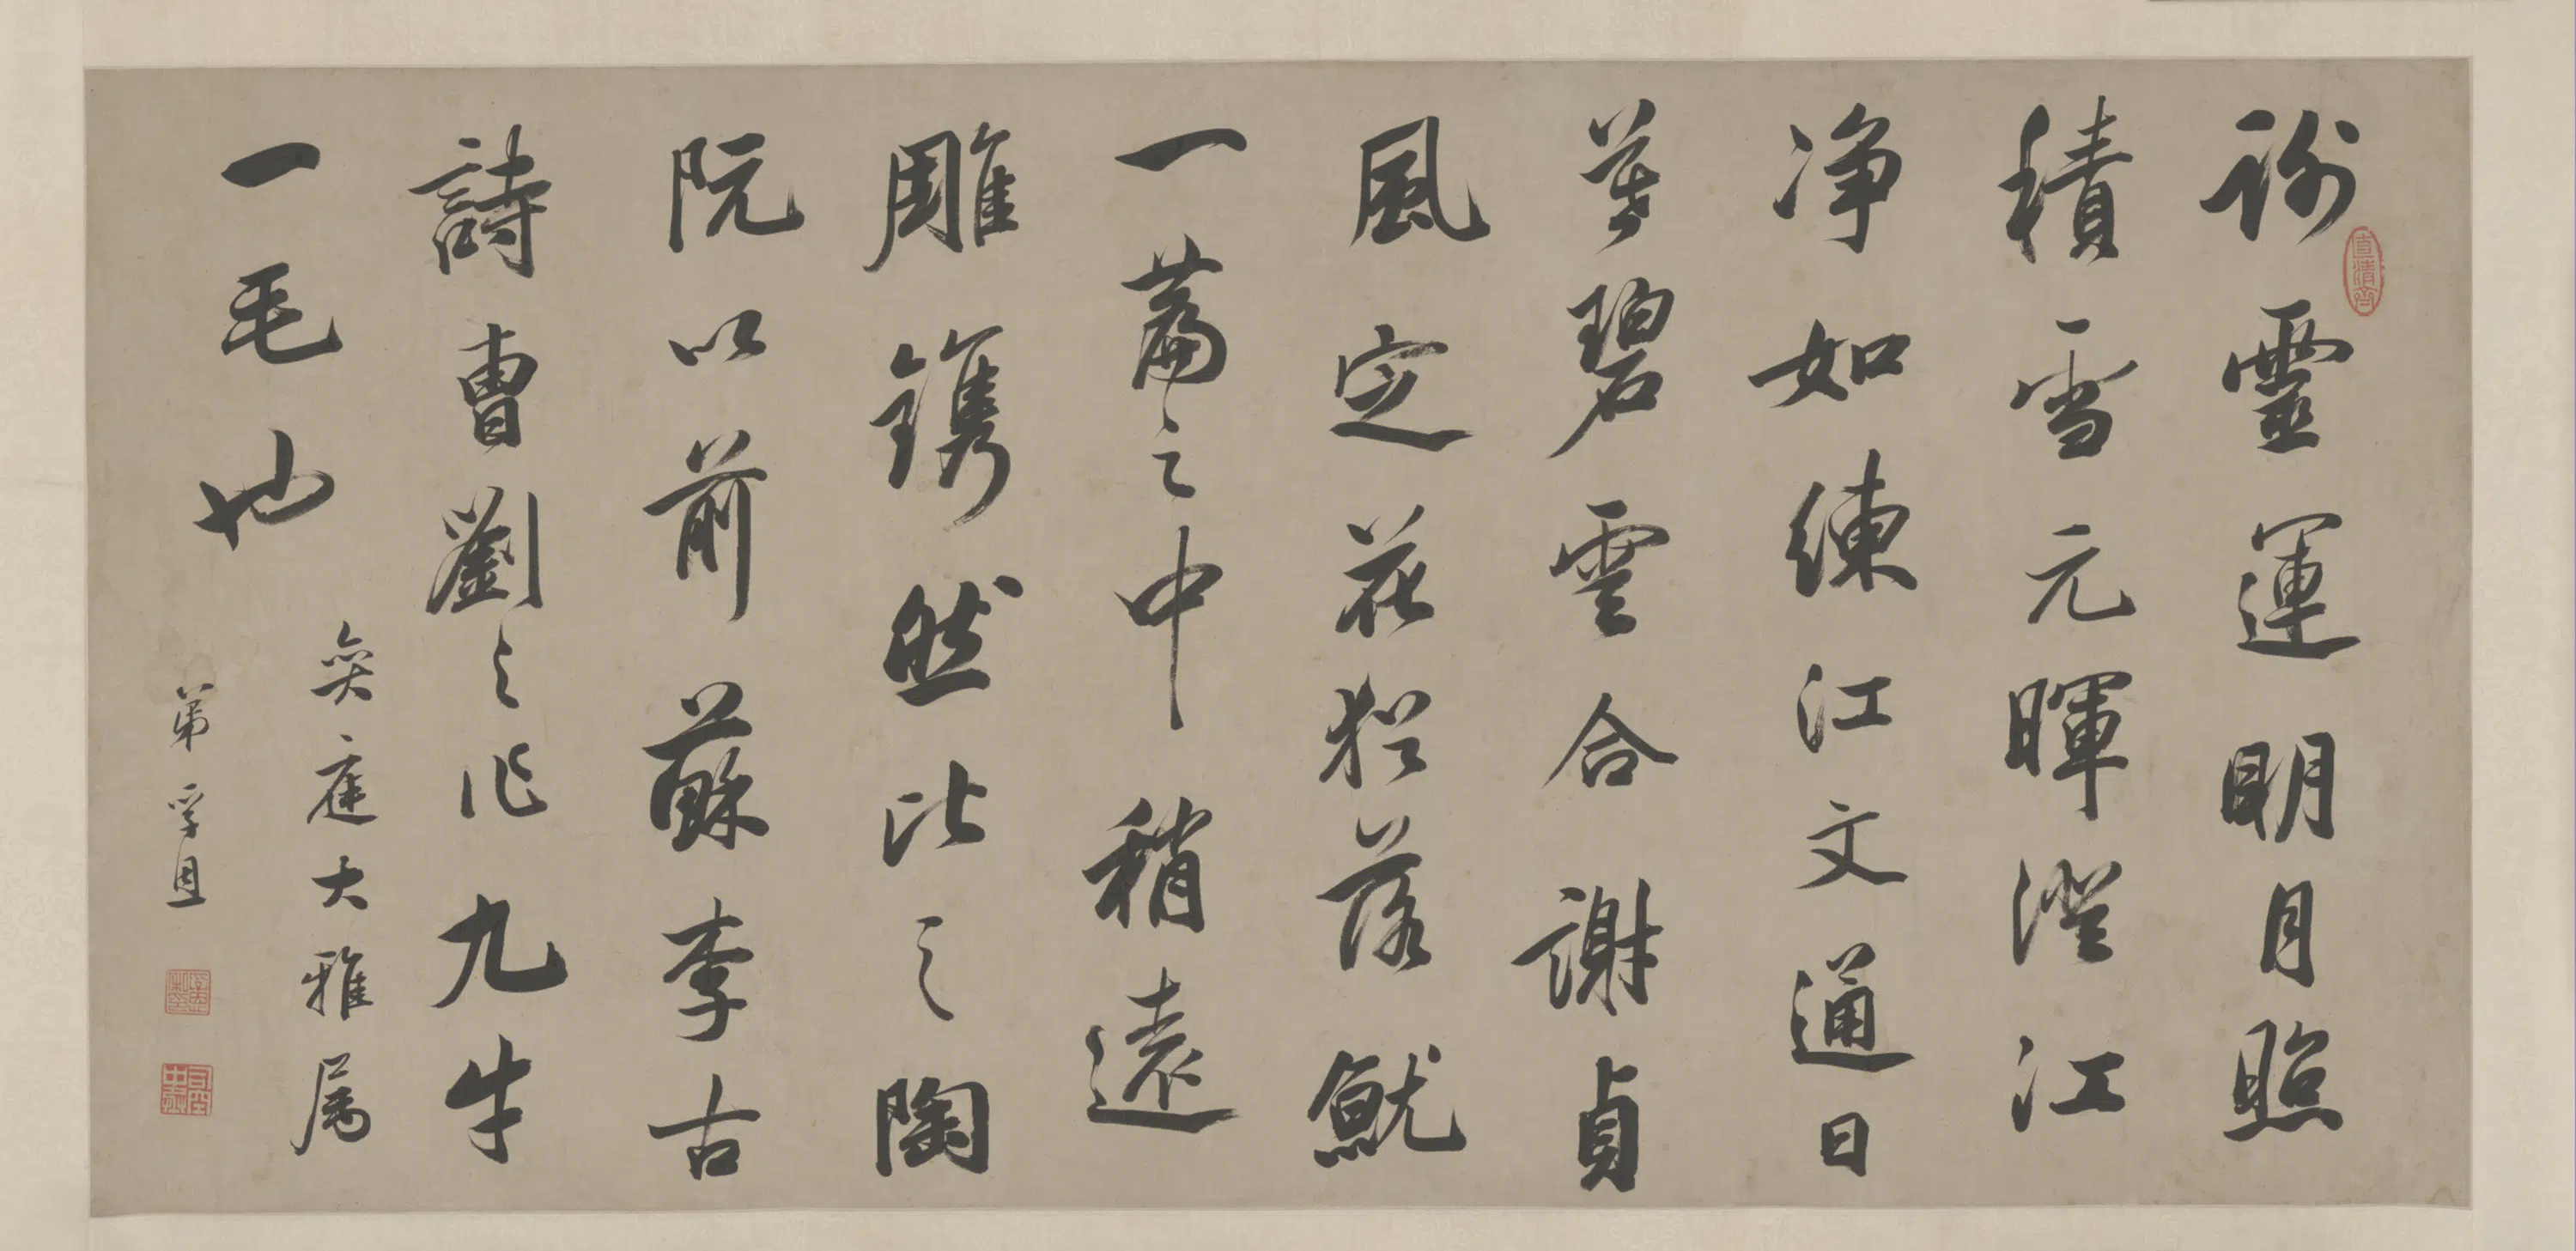 直清齋
謝靈運明月照
積雪元暉澄江
净如練江文通日
暮碧雲合謝貞
風定花猶落就
一篇之中稍遠
雕鐫然比之陶
阮以前蘇李古
詩曹劉之作九牛
一毛也
奕庭大雅属
弟孚恩